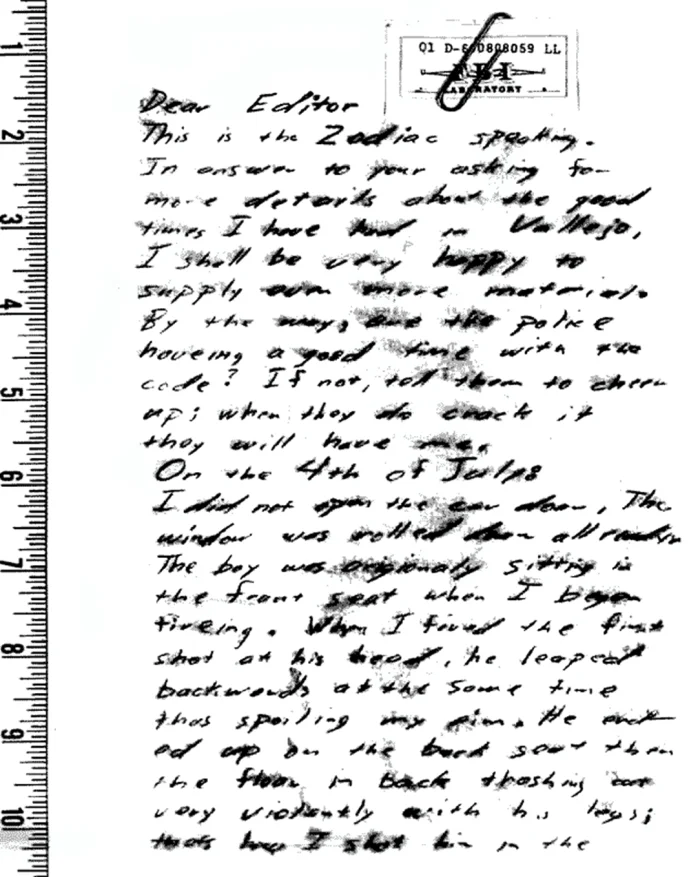 Q1 D-6 0808059 LL
FBI
LABORATORY
Dear Editor
This is the Zodiac speaking.
In answer to your asking for
more details about the good
times I have had in Vallejo,
I shall be very happy to
supply even more material.
By the way, are the police
haveing a good time with the
code? If not, tell them to cheer
up; when they do crack it
they will have me.
On the 4th of July:
I did not open the car door, The
window was rolled down all ready
The boy was origionaly sitting in
the front seat when I began
fireing. When I fired the first
shot at his head, he leaped
backwards at the same time
thus spoiling my aim. He end-
ed up on the back seat then
the floor in back thashing out
very violently with his legs;
thats how I shot him in the
1
2
3
4
5
6
7
8
9
10